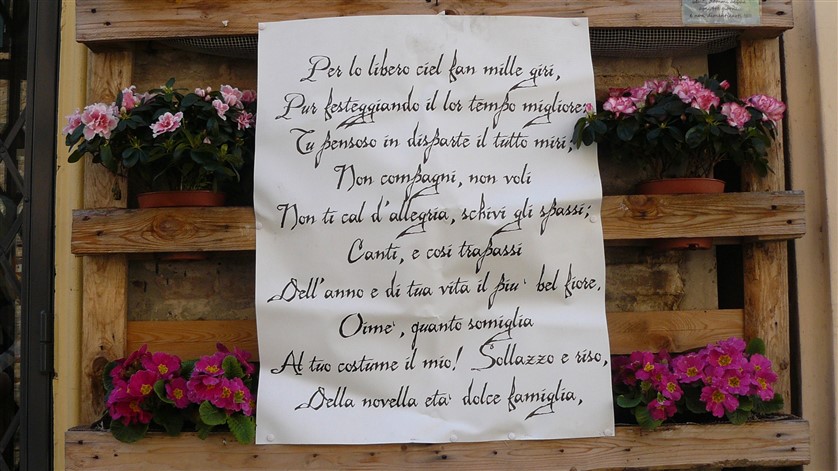 Per lo libero ciel fan mille giri,
Pur festeggiando il lor tempo migliore:
Tu pensoso in disparte il tutto miri;
Non compagni, non voli
Non ti cal d'allegria, schivi gli spassi;
Canti, e così trapassi
Dell'anno e di tua vita il più bel fiore.
Oimè, quanto somiglia
Al tuo costume il mio! Sollazzo e riso,
Della novella età dolce famiglia,